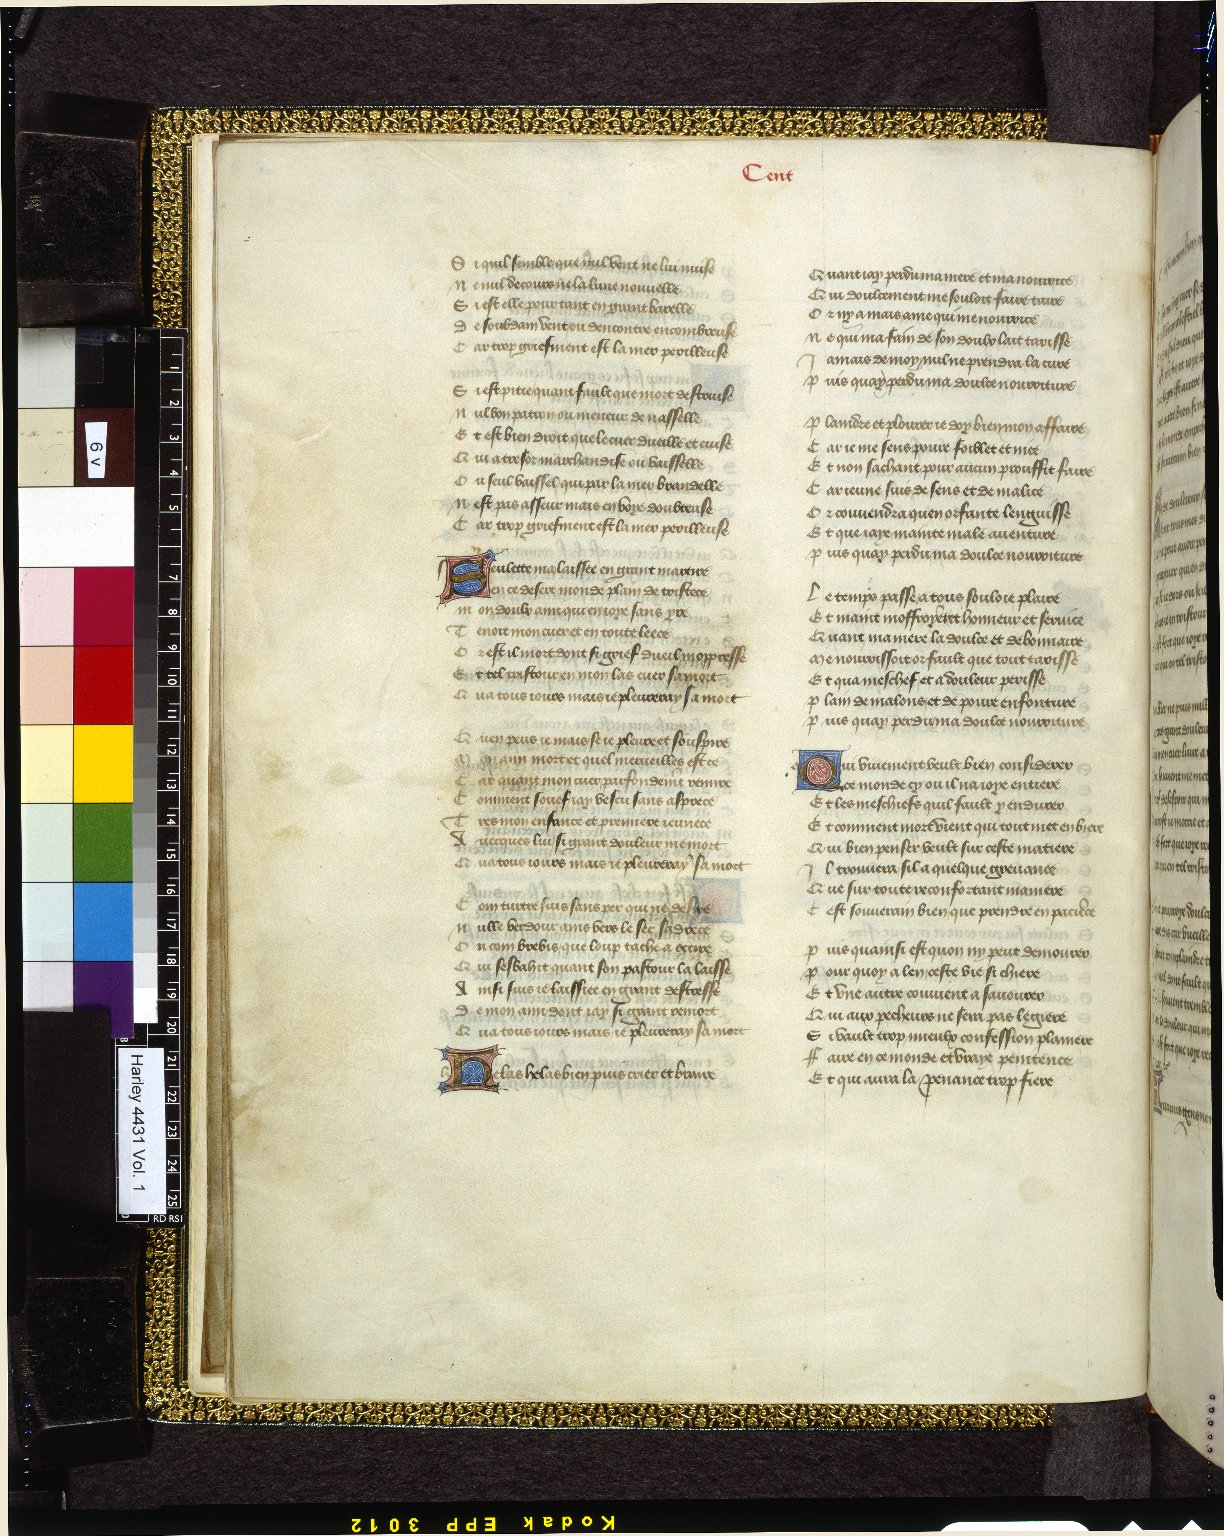 Cent
S i quil semble que nul vent ne lui nuise
N e nul decours ne la lune nouvelle
S i est elle pour tant en grant barelle
D e soubdain vent ou dencontre encombreuse
C ar trop griefment est la mer perilleuse
S i est pitie quant fault que mort destruise
N ul bon patron ou meneur de nasselle
E t est bien droit que le cuer dueille et cuise
Q ui a tresor marchandise ou vaisselle
O u seul vaissel qui par la mer brandelle
N est pas asseur mais en voye doubteuse
C ar trop griefment est la mer perilleuse
Seulette ma laissee en grant martire
en ce desert monde plain de tristece
M on doulz ami qui en ioye sans yre
T enoit mon cuer et en toute leece
O r est il mort dont si grief dueil moppresse
E t tel tristour en mon las cuer samort
Q ua tous iours mais ie pleureray sa mort
Q uen puis ie mais se ie pleure et souspire
M on ami mort et quel merveilles est ce
C ar quant mon cuer parfondement remire
C omment souef iay vescu sans asprece
T res mon enfance et premiere ieunece
A vecques lui si grant douleur me mort
Q ua tous iours mais ie pleureray sa mort
C om turtre suis sans per qui ne desire
N ulle verdour ains vers le sec sadrece
O u com brebis que loup tache a occire
Q ui sesbahit quant son pastour la laisse
A insi suis ie laissiee en grant destresse
D e mon ami dont iay si grant remort
Q ua tous iours mais ie pleureray sa mort
Helas helas bien puis crier et braire
Q uant iay perdu ma mere et ma nourrice
Q ui doulcement me souloit faire taire
O r ny a mais ame qui me nourrice
N e qui ma fain de son doulz lait tarisse
J amais de moy nul ne prendra la cure
P uis quay perdu ma doulce nourriture
P laindre et plourer ie doy bien mon affaire
C ar ie me sens povre foiblet et nice
E t non sachant pour aucun prouffit faire
C ar ieune suis de sens et de malice
O r couvendra quen orfante lenguisse
E t que iaye mainte male aventure
P uis quay perdu ma doulce nourriture
L e temps passe a tous souloie plaire
E t maint moffroyent honneur et service
Q uant ma mere la doulce et debonnaire
M e nourrissoit or fault que tout tarisse
E t qua meschef et a douleur perisse
P lain de malons et de povre enfonture
P uis quay perdu ma doulce nourriture
Qui vivement veult bien considerer
ce monde cy ou il na ioye entiere
E t les meschiefs quil fault y endurer
E t comment mort vient qui tout met en biere
Q ui bien penser veult sur ceste matiere
J l trouvera sil a quelque grevance
Q ue sur toute reconfortant maniere
C est souverain bien que prendre en pacience
P uis quainsi est quon ny peut demourer
P our quoy a len ceste vie si chiere
E t une autre couvient a savourer
Q ui aux pecheurs ne sera pas legiere
S i vault trop mieulx confession planiere
F aire en ce monde et vraye penitence
E t qui aura la penance trop fiere
6 v
1
2
3
4
5
7
8
9
10
11
12
13
14
15
16
17
18
19
20
21
22
23
24
25
RD RSI
Harley 4431 Vol. 1
Kodak EPP 3012